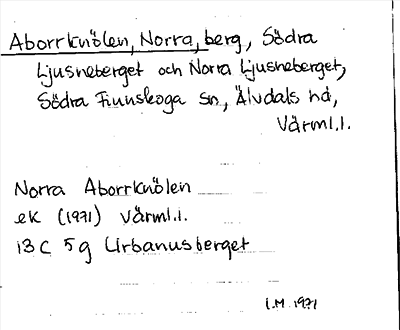 Aborrknölen, Norra, berg, Södra
Ljusneberget och Norra Ljusneberget,
Södra Finnskoga sn, Älvdals hd,
Värml.l.
Norra Aborrknölen
ek (1971) Värml.l.
13 C 5 g Urbanusberget
I.M. 1971